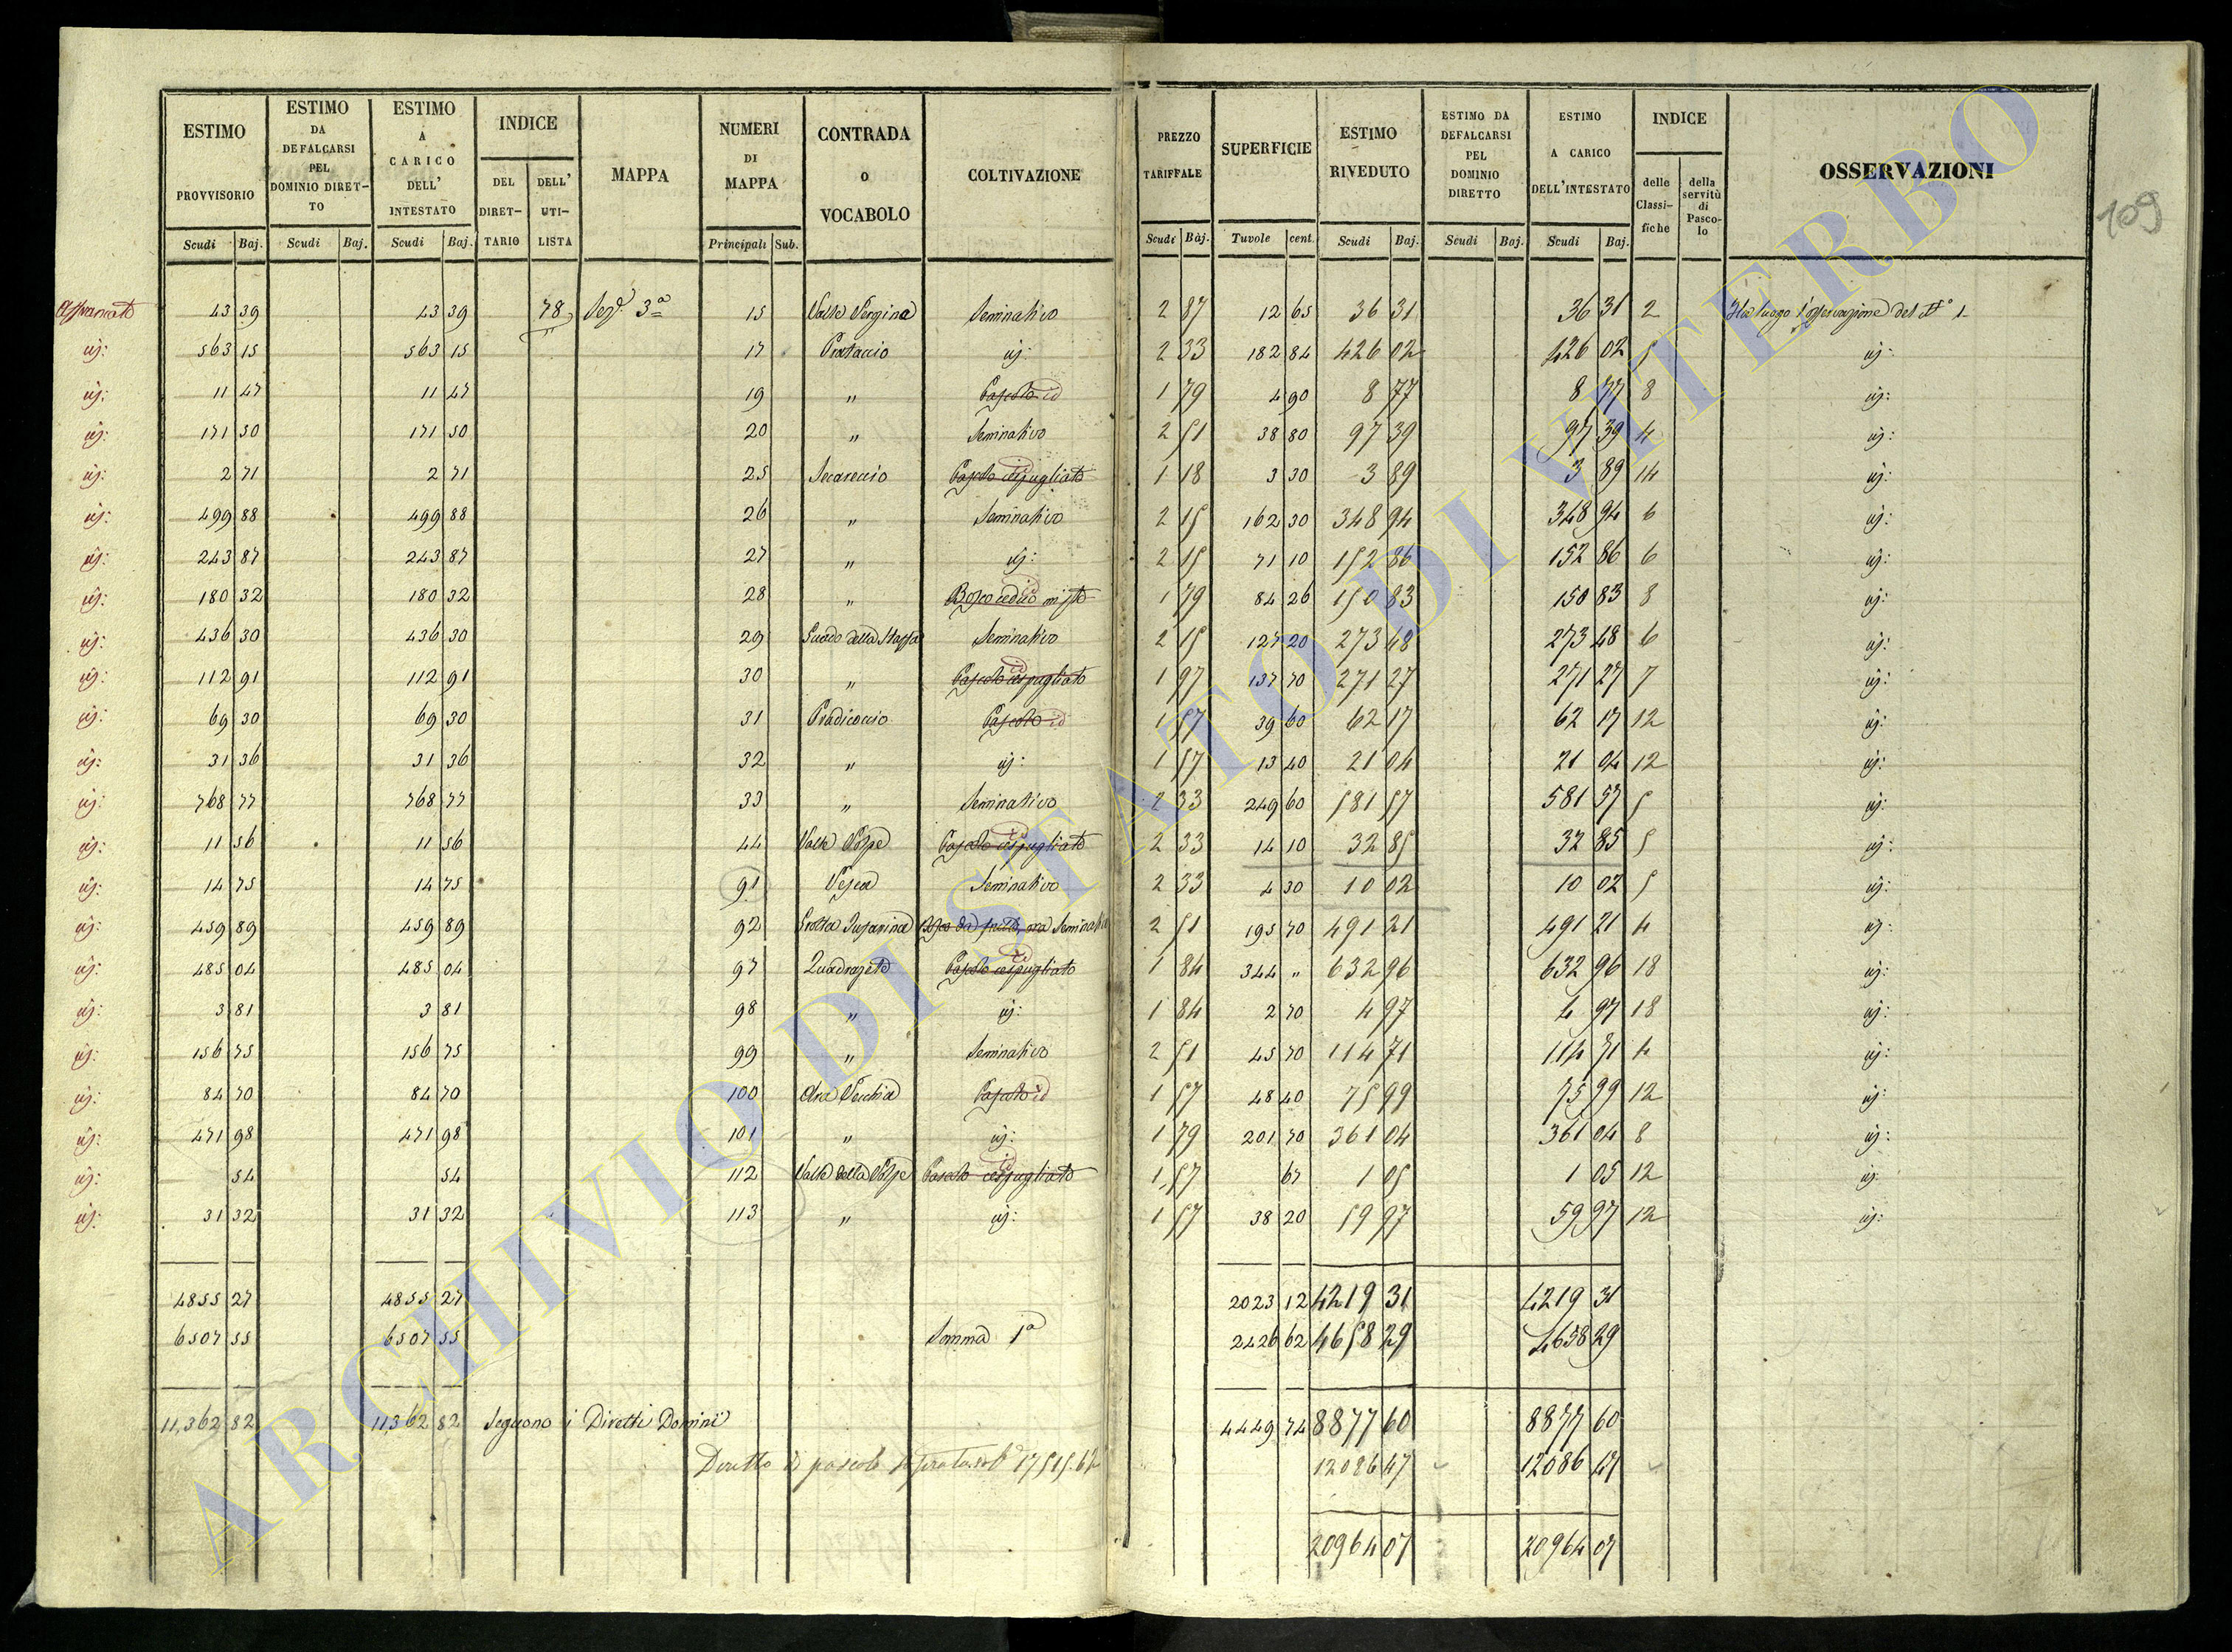 ESTIMO PROVVISORIO Scudi Baj.
ESTIMO DA DEFALCARSI PEL DOMINIO DIRETTO Scudi Baj.
ESTIMO A CARICO DELL' INTESTATO Scudi Baj.
INDICE DEL DIRETTARIO DELL' UTILISTA
MAPPA
NUMERI DI MAPPA Principali Sub.
CONTRADA o VOCABOLO
COLTIVAZIONE
PREZZO TARIFFALE Scudi Baj.
SUPERFICIE Tuvole cent.
ESTIMO RIVEDUTO Scudi Baj.
ESTIMO DA DEFALCARSI PEL DOMINIO DIRETTO Scudi Baj.
ESTIMO A CARICO DELL'INTESTATO Scudi Baj.
INDICE delle Classifiche della servitù di Pascolo
OSSERVAZIONI
109
Affrancato 43 39 43 39 78 Sez. 3ª 15 Valle Vergina Seminativo 2 87 12 65 36 31 36 31 2 Ha luogo l'osservazione del N° 1
id: 563 15 563 15 17 Prataccio id: 2 33 182 84 426 02 426 02 5 id:
id: 11 47 11 47 19 " Pascolo id 1 79 4 90 8 77 8 77 8 id:
id: 171 30 171 30 20 " Seminativo 2 51 38 80 97 39 97 39 4 id:
id: 2 71 2 71 25 Secareccio Pascolo cespugliato id 1 18 3 30 3 89 3 89 14 id:
id: 499 88 499 88 26 " Seminativo 2 15 162 30 348 94 348 94 6 id:
id: 243 87 243 87 27 " id: 2 15 71 10 152 86 152 86 6 id:
id: 180 32 180 32 28 " Bosco ceduo misto id 1 79 84 26 150 83 150 83 8 id:
id: 436 30 436 30 29 Guado della Staffa Seminativo 2 15 127 20 273 48 273 48 6 id:
id: 112 91 112 91 30 " Pascolo cespugliato id 1 97 137 70 271 27 271 27 7 id:
id: 69 30 69 30 31 Pradicoccio Pascolo id 1 57 39 60 62 17 62 17 12 id:
id: 31 36 31 36 32 " id: 1 57 13 40 21 04 21 04 12 id:
id: 768 77 768 77 33 " Seminativo 2 33 249 60 581 57 581 57 5 id:
id: 11 56 11 56 44 Valle Volpe Pascolo cespugliato id 2 33 14 10 32 85 32 85 5 id:
id: 14 75 14 75 91 Pesca Seminativo 2 33 4 30 10 02 10 02 5 id:
id: 459 89 459 89 92 Grotta Bosco da frutto, ora Seminativo 2 51 195 70 491 21 491 21 4 id:
id: 485 04 485 04 97 Quadrageto Pascolo cespugliato id 1 84 344 " 632 96 632 96 18 id:
id: 3 81 3 81 98 " id: 1 84 2 70 4 97 4 97 18 id:
id: 156 75 156 75 99 " Seminativo 2 51 45 70 114 71 114 71 4 id:
id: 84 70 84 70 100 Ara Vecchia Pascolo id 1 57 48 40 75 99 75 99 12 id:
id: 471 98 471 98 101 " id: 1 79 201 70 361 04 361 04 8 id:
id: 54 54 112 Valle della Volpe Pascolo cespugliato id 1 57 67 1 05 1 05 12 id:
id: 31 32 31 32 113 " id: 1 57 38 20 59 97 59 97 12 id:
4855 27 4855 27 2023 12 4219 31 4219 31
6507 55 6507 55 Somma 1ª 2426 62 4658 29 4658 29
11,362 82 11,362 82 Seguono i Diretti Domini 4449 74 8877 60 8877 60
Diretto di pascolo 17515.62 12086 47 12086 47
20964 07 20964 07
ARCHIVIO DI STATO DI VITERBO